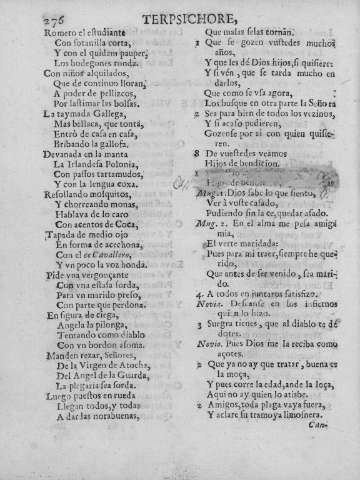 276 TERPSICHORE,
Romero el estudiante
Con sotanilla corta,
Y con el quidam pauper,
Los bodegones ronda.
Con niños alquilados,
Que de continuo lloran,
A poder de pellizcos,
Por lastimar las bolsas.
La taymada Gallega,
Mas bellaca, que tonta,
Entrò de casa en casa,
Bribando la gallofa.
Devanada en la manta
La Irlandesa Polonia,
Con passos tartamudos,
Y con la lengua coxa.
Resollando mosquitos,
Y chorreando monas,
Hablava de lo caro
Con acentos de Coca.
Tapada de medio ojo
En forma de acechona,
Con el ce Cavallero,
Y vn poco la voz honda.
Pide vna vergonçante
Con vna estafa sorda,
Para vn marido preso,
Con parte que perdona.
En figura de ciega,
Angela la pilonga,
Tentando como diablo
Con vn bordon asoma.
Manden rezar, Señores,
De la Virgen de Atocha,
Del Angel de la Guarda,
La plegaria sea sorda.
Luego puestos en rueda
Llegan todos, y todas
A dar las norabuenas,
Que malas selas tornàn.
1 Que se gozen vuestedes muchos
años,
Y que les dé Dios hijos, si quisiere:
Y si vèn, que se tarda mucho en
darlos,
Que como se vsa agora,
Los busque en otra parte la Señora
2 Sea para bien de todos los vezinos,
Y si acaso pudieren,
Gozense por aì con quien quisieren.
8 De vuestedes veamos
Hijos de bendicion.
Mug. 1. Dios sabe lo que siento,
Ver à vusté casado,
Pudiendo sin la ce, quedar asado.
Mug. 2. En el alma me pesa amiga
mia,
El verte maridada:
Pues para mi traer, siempre he querido,
Que antes de ser venido, sea marido.
4. A todos en juntaros satisfizo.
Novio. Descanse en los infiernos
quien lo hizo.
3 Suegra tienes, que al diablo te dè
dotes.
Novio. Pues Dios me la reciba como
açotes.
2 Que ya no ay que tratar, buena es
la moça,
Y pues corre la edad, ande la loça,
Aqui no ay quien lo atisbe.
2 Amigos, toda plaga vaya fuera,
Y aclare su tramoya limosnera.
Can-